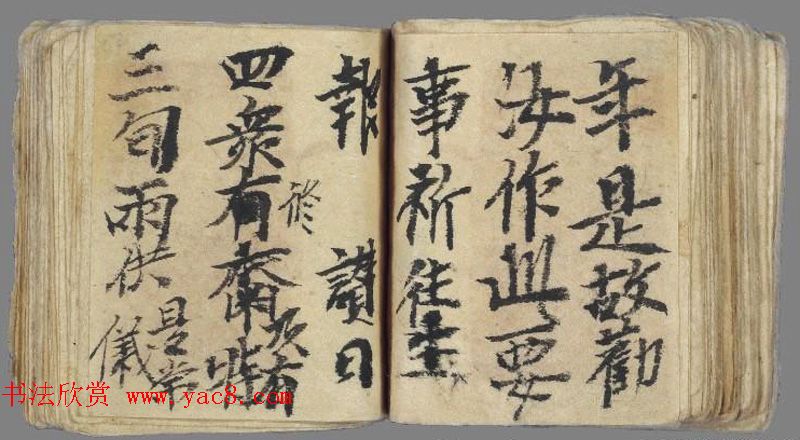 年是故勸
汝作此要
事祈往生
報 讚曰
四衆有齋及有時
修
三旬兩供是常儀
书法欣赏 www.yac8.com